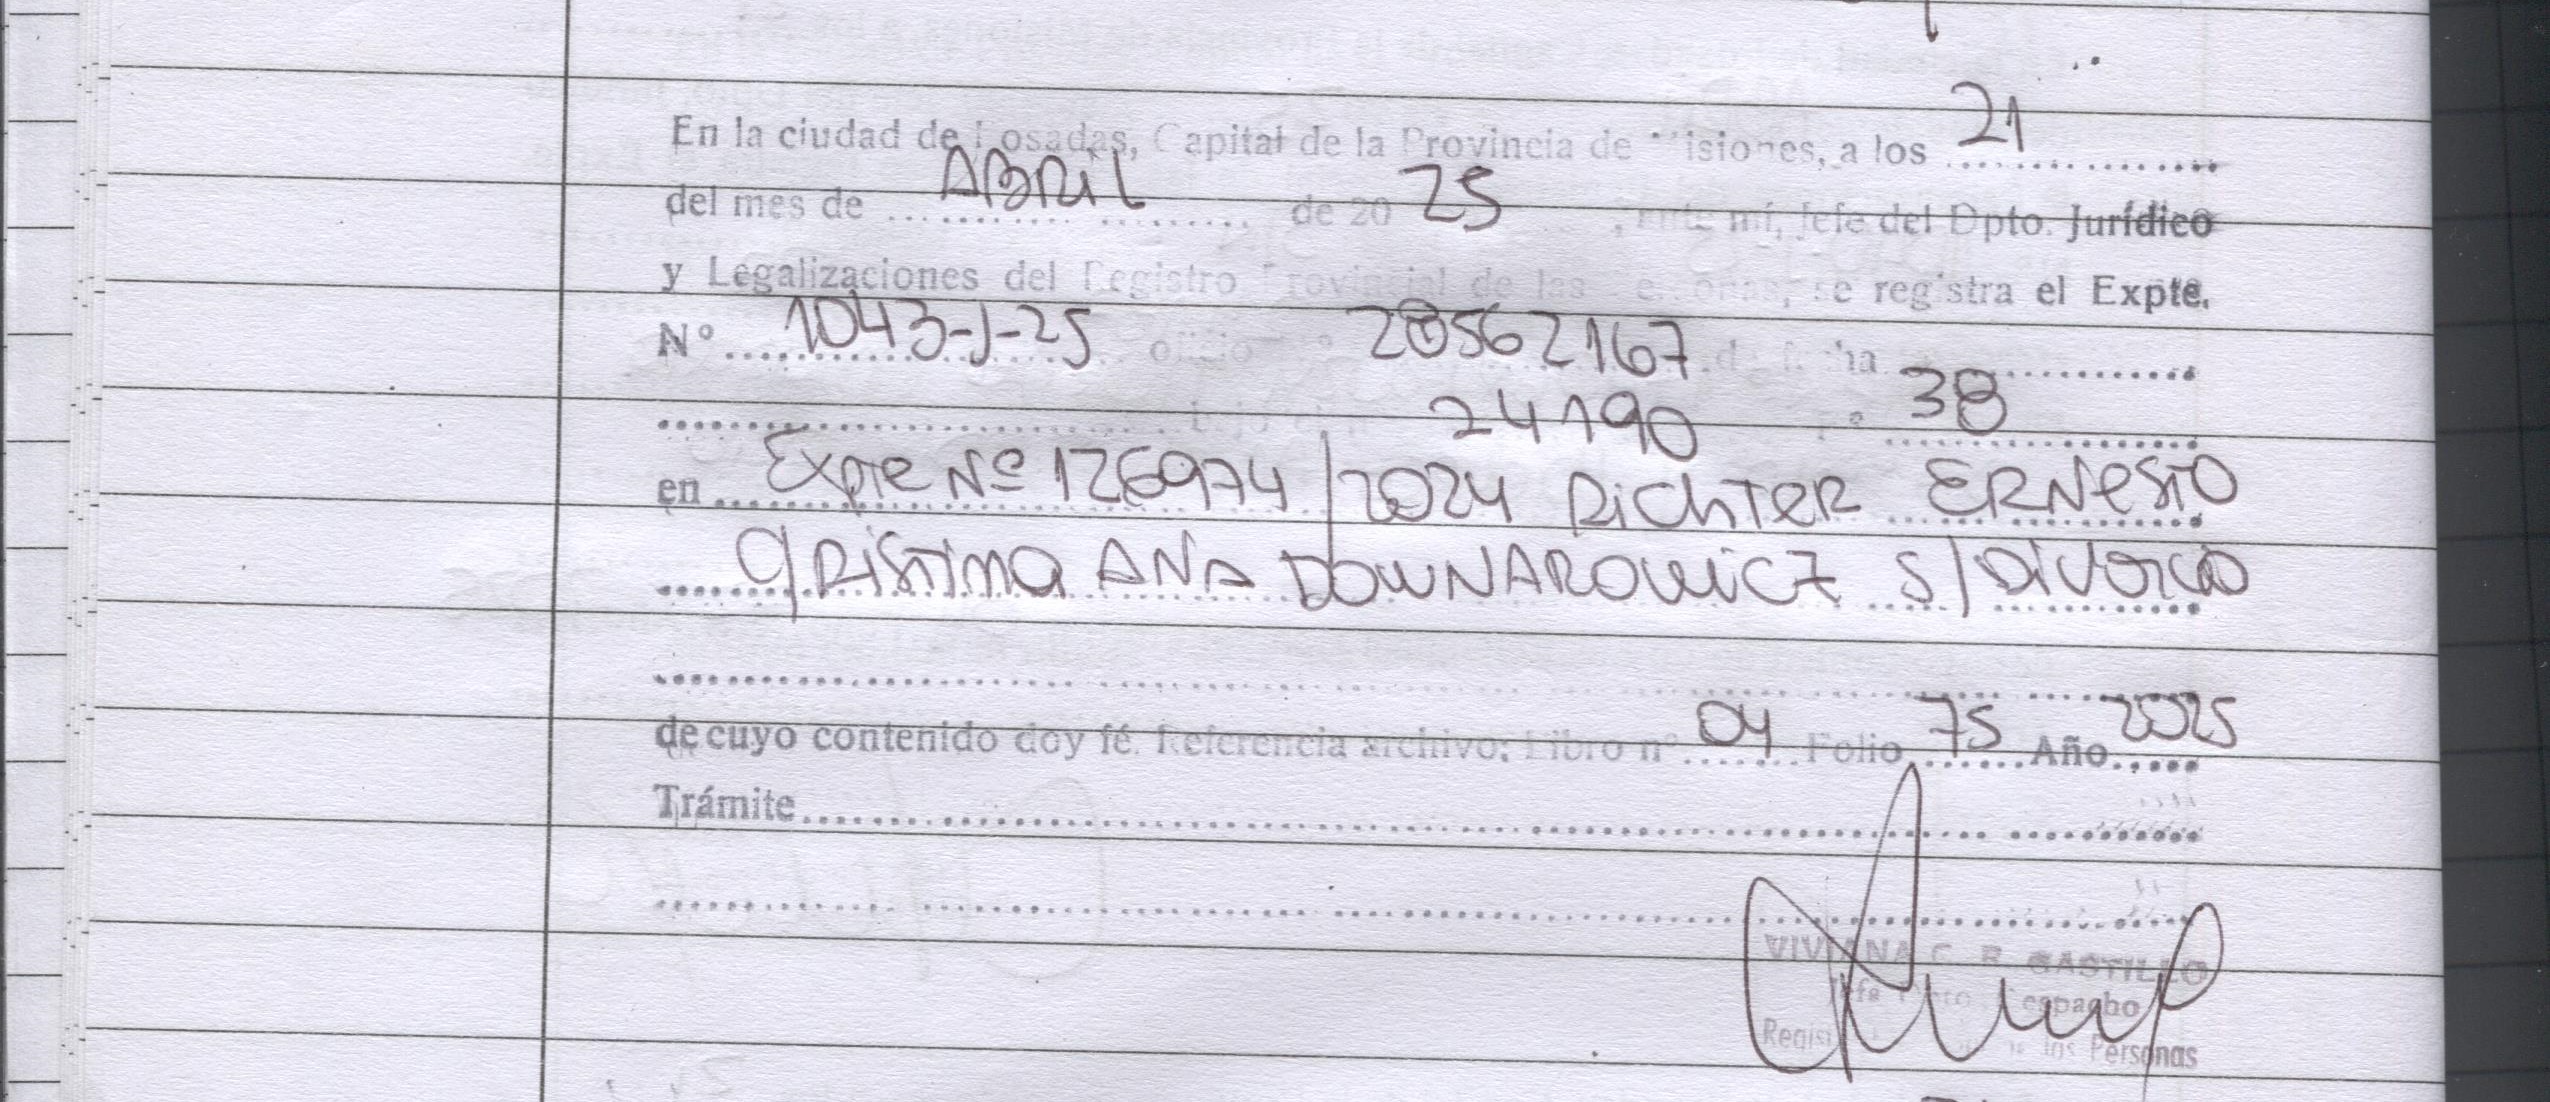 En la ciudad de Posadas, Capital de la Provincia de Misiones, a los 21
del mes de ABRIL de 20 25, ante mí, Jefe del Dpto. Jurídico
y Legalizaciones del Registro Provincial de las Personas, se registra el Expte.
Nº 1043-J-25 oficio 28562167 de fecha
bajo 24190 38
en Expte Nº 126974/2024 RichTER ERNesto
c/ RistinA ANA DOWNAROWICZ S/ DiVorcio
de cuyo contenido doy fé. Referencia archivo: Libro nº 04 Folio 75 Año 2025
Trámite
VIVIANA C. R. CASTILLO
Jefa Dpto. Despacho
Personas